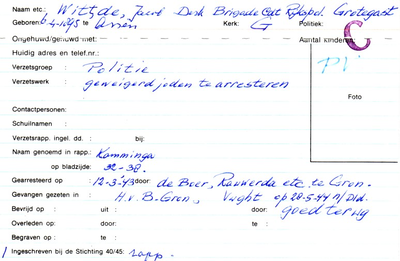 Naam etc.: Witt, de, Jacob Derk Brigade Cdt Rijkspol. Grootegast
Geboren: 6-4-1895 te Assen Kerk: G Politiek:
Ongehuwd/gehuwd met: Aantal kinderen: C
Huidig adres en telef.nr.:
Verzetsgroep : Politie
Verzetswerk : geweigerd joden te arresteren
Foto
Contactpersonen:
Schuilnaam :
Verzetsrapp. ingel. dd. : bij:
Naam genoemd in rapp.: Kamminga
op bladzijde: 32-38.
Gearresteerd op : 12-3-'43 door: de Boer, Rauwerda etc te Gron.
Gevangen gezeten in : H.v.B. Gron., Vught op 28-5-44 n/Dld.
Bevrijd op : uit : door: goed terug
Overleden op: te : door:
Begraven op : te :
Ingeschreven bij de Stichting 40/45: rapp.